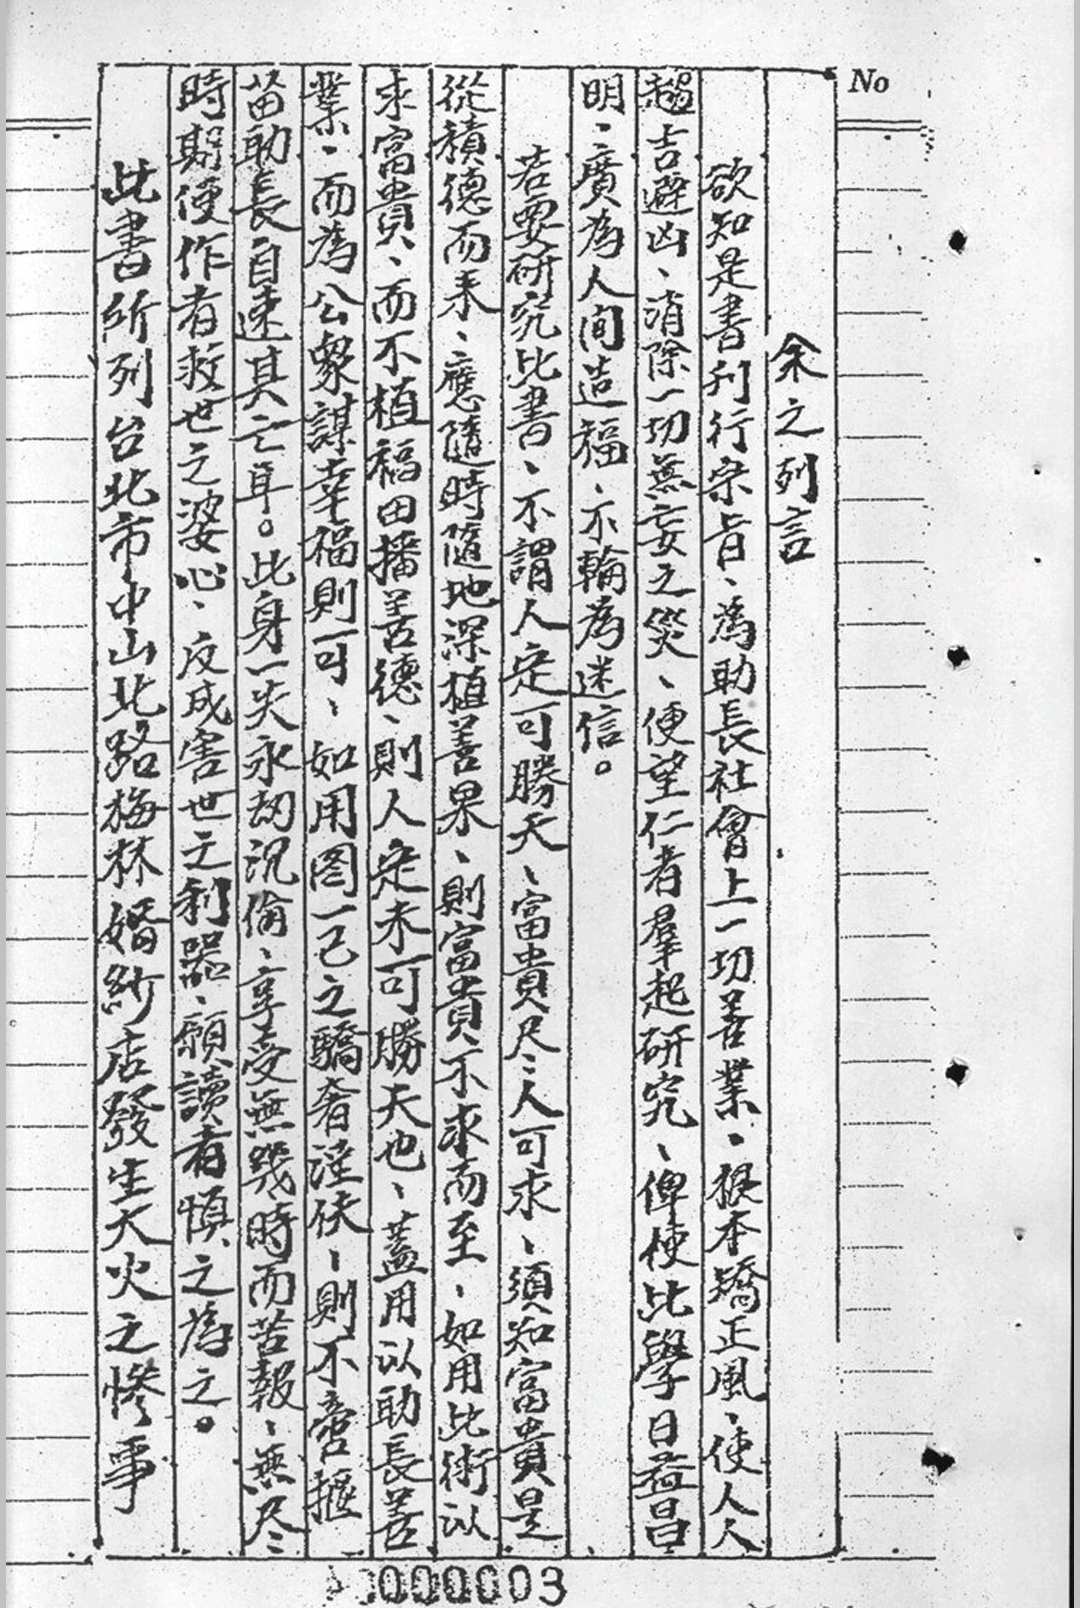 No
余之列言
欲知是書刊行宗旨、為助長社會上一切善業、根本矯正風、使人人
趨吉避凶、消除一切無妄之災、便望仁者羣起研究、俾使比學日益昌
明、廣為人間造福、亦輪為迷信。
若要研究比書、不謂人定可勝天、富貴尽々人可求、須知富貴是
從積德而來、應隨時隨地深植善果、則富貴不求而至、如用此術以
求富貴、而不植福田播善德、則人定未可勝天也、蓋用以助長善
業、而為公衆謀幸福則可、如用图一己之驕奢淫佚、則不啻揠
苗助長自速其亡耳。此身一失永劫沉倫、享受無幾時而苦報、無尽々
時期便作者救世之婆心、反成害世之利器、願讀者慎之為之。
此書所列台北市中山北路梅林婚紗店發生大火之惨事
000003